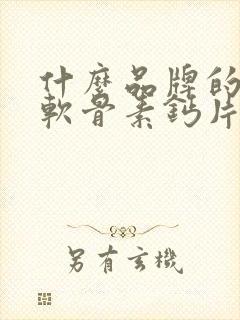 什麼品牌的
軟骨素鈣片
另有玄機